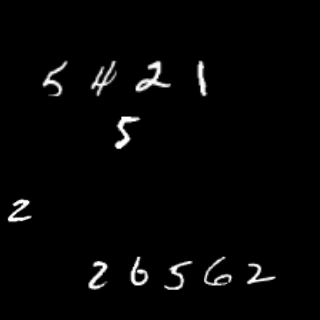 5 4 2 1
5
2
2 6 5 6 2